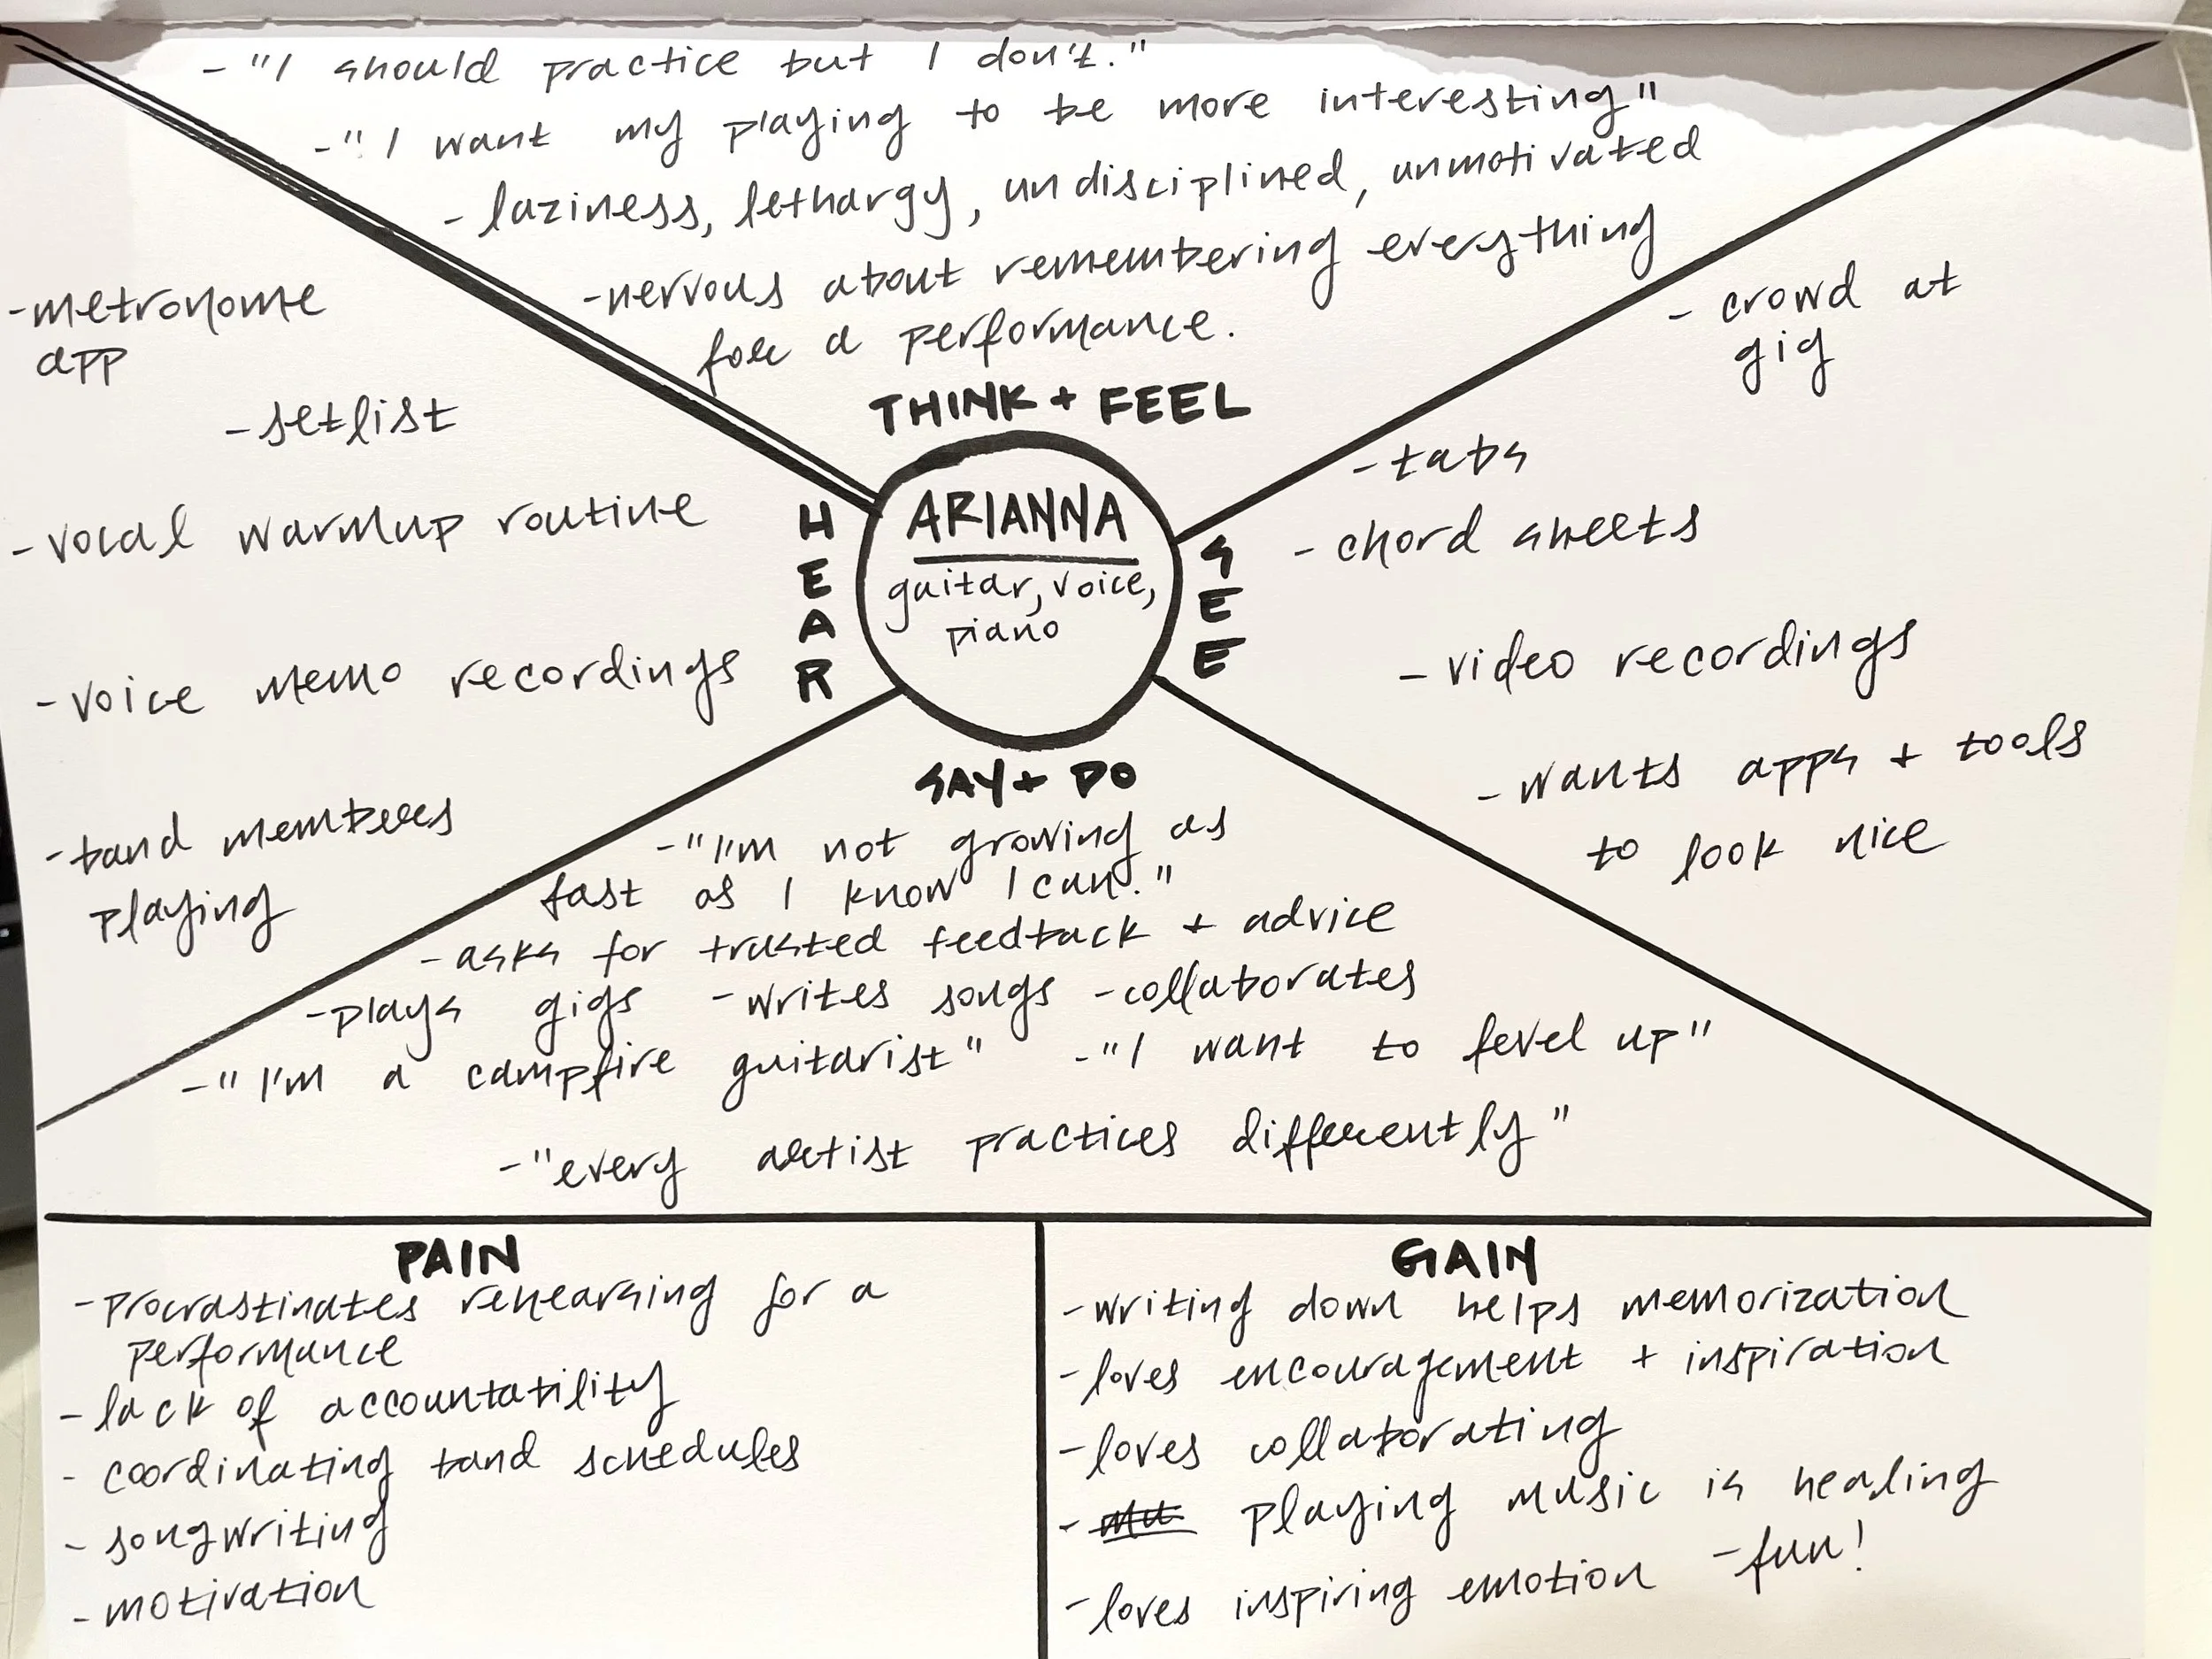 - "I should practice but I don't."
- "I want my playing to be more interesting"
- laziness, lethargy, undisciplined, unmotivated
- nervous about remembering everything
for a performance.
THINK + FEEL
- metronome
app
- setlist
- vocal warmup routine
- voice memo recordings
- band members
playing
HEAR
ARIANNA
guitar, voice,
piano
SEE
- crowd at
gig
- tabs
- chord sheets
- video recordings
- wants apps + tools
to look nice
SAY + DO
- "I'm not growing as
fast as I know I can."
- asks for trusted feedback + advice
- plays gigs - writes songs - collaborates
- "I'm a campfire guitarist" - "I want to level up"
- "every artist practices differently"
PAIN
- procrastinates rehearsing for a
performance
- lack of accountability
- coordinating band schedules
- songwriting
- motivation
GAIN
- writing down helps memorization
- loves encouragement + inspiration
- loves collaborating
- playing music is healing
- loves inspiring emotion - fun!